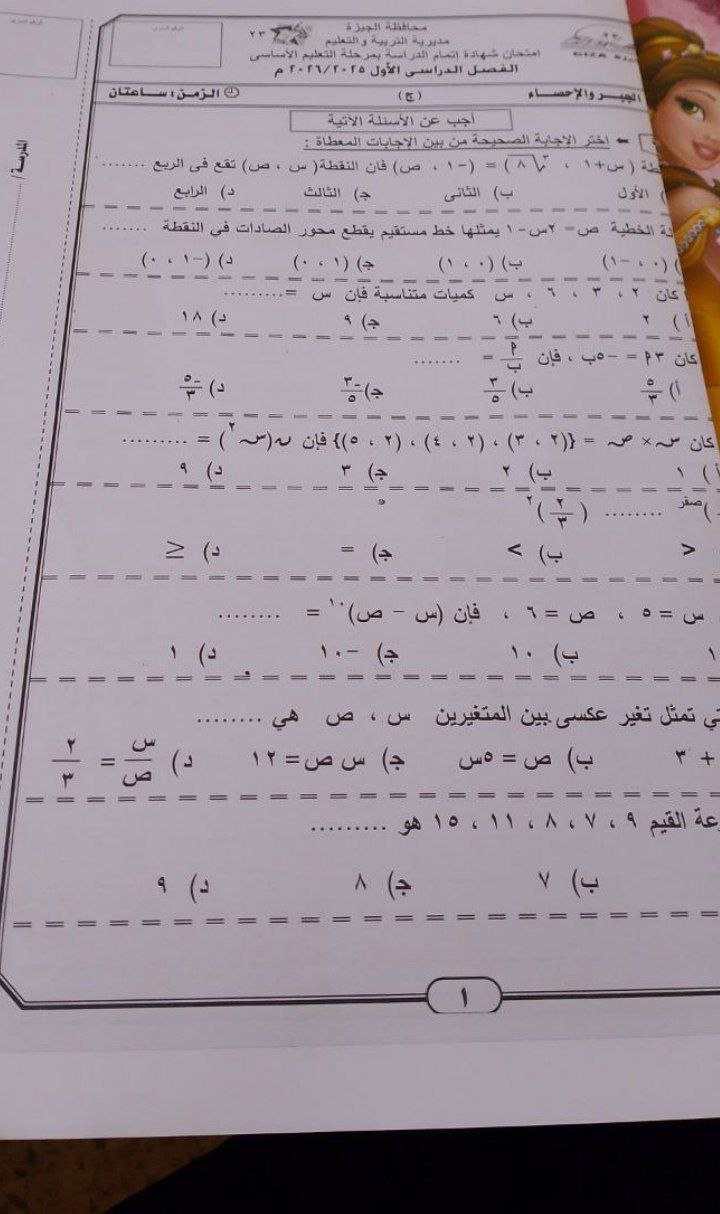 محافظة الجيزة
مديرية التربية والتعليم
امتحان شهادة إتمام الدراسة بمرحلة التعليم الأساسى
الفصل الدراسى الأول ٢٠٢٦/٢٠٢٥ م
٢٣
الجبر والإحصاء (ج) الزمن: ساعتان
أجب عن الأسئلة الآتية
اختر الإجابة الصحيحة من بين الإجابات المعطاة :
(س+١ ، ∛٨) = (-١ ، ص) فإن النقطة (س ، ص) تقع فى الربع .......
الأول ب) الثانى ج) الثالث د) الرابع
الخطية ص= ٢س-١ يمثلها خط مستقيم يقطع محور الصادات فى النقطة .......
(٠ ، -١) ب) (٠ ، ١) ج) (١ ، ٠) د) (-١ ، ٠)
كان ٢ ، ٣ ، ٦ ، س كميات متناسبة فإن س = .........
أ) ٢ ب) ٦ ج) ٩ د) ١٨
كان ٣أ = -٥ب ، فإن أ/ب = .......
أ) ٥/٣ ب) ٣/٥ ج) -٣/٥ د) -٥/٣
كان س × ص = {(٢ ، ٣) ، (٢ ، ٤) ، (٢ ، ٥)} فإن ن(س٢) = .........
أ) ١ ب) ٢ ج) ٣ د) ٩
)صفر ........ (٢/٣)٢
> ب) < ج) = د) ≥
س = ٥ ، ص = ٦ ، فإن (س - ص)١٠ = ........
ب) ١٠ ج) -١٠ د) ١
تمثل تغير عكسى بين المتغيرين س ، ص هي ........
+ ٣ ب) ص = ٥س ج) س ص = ١٢ د) س/ص = ٢/٣
القيم ٩ ، ٧ ، ٨ ، ١١ ، ١٥ هو .........
ب) ٧ ج) ٨ د) ٩
١
المدرسة/